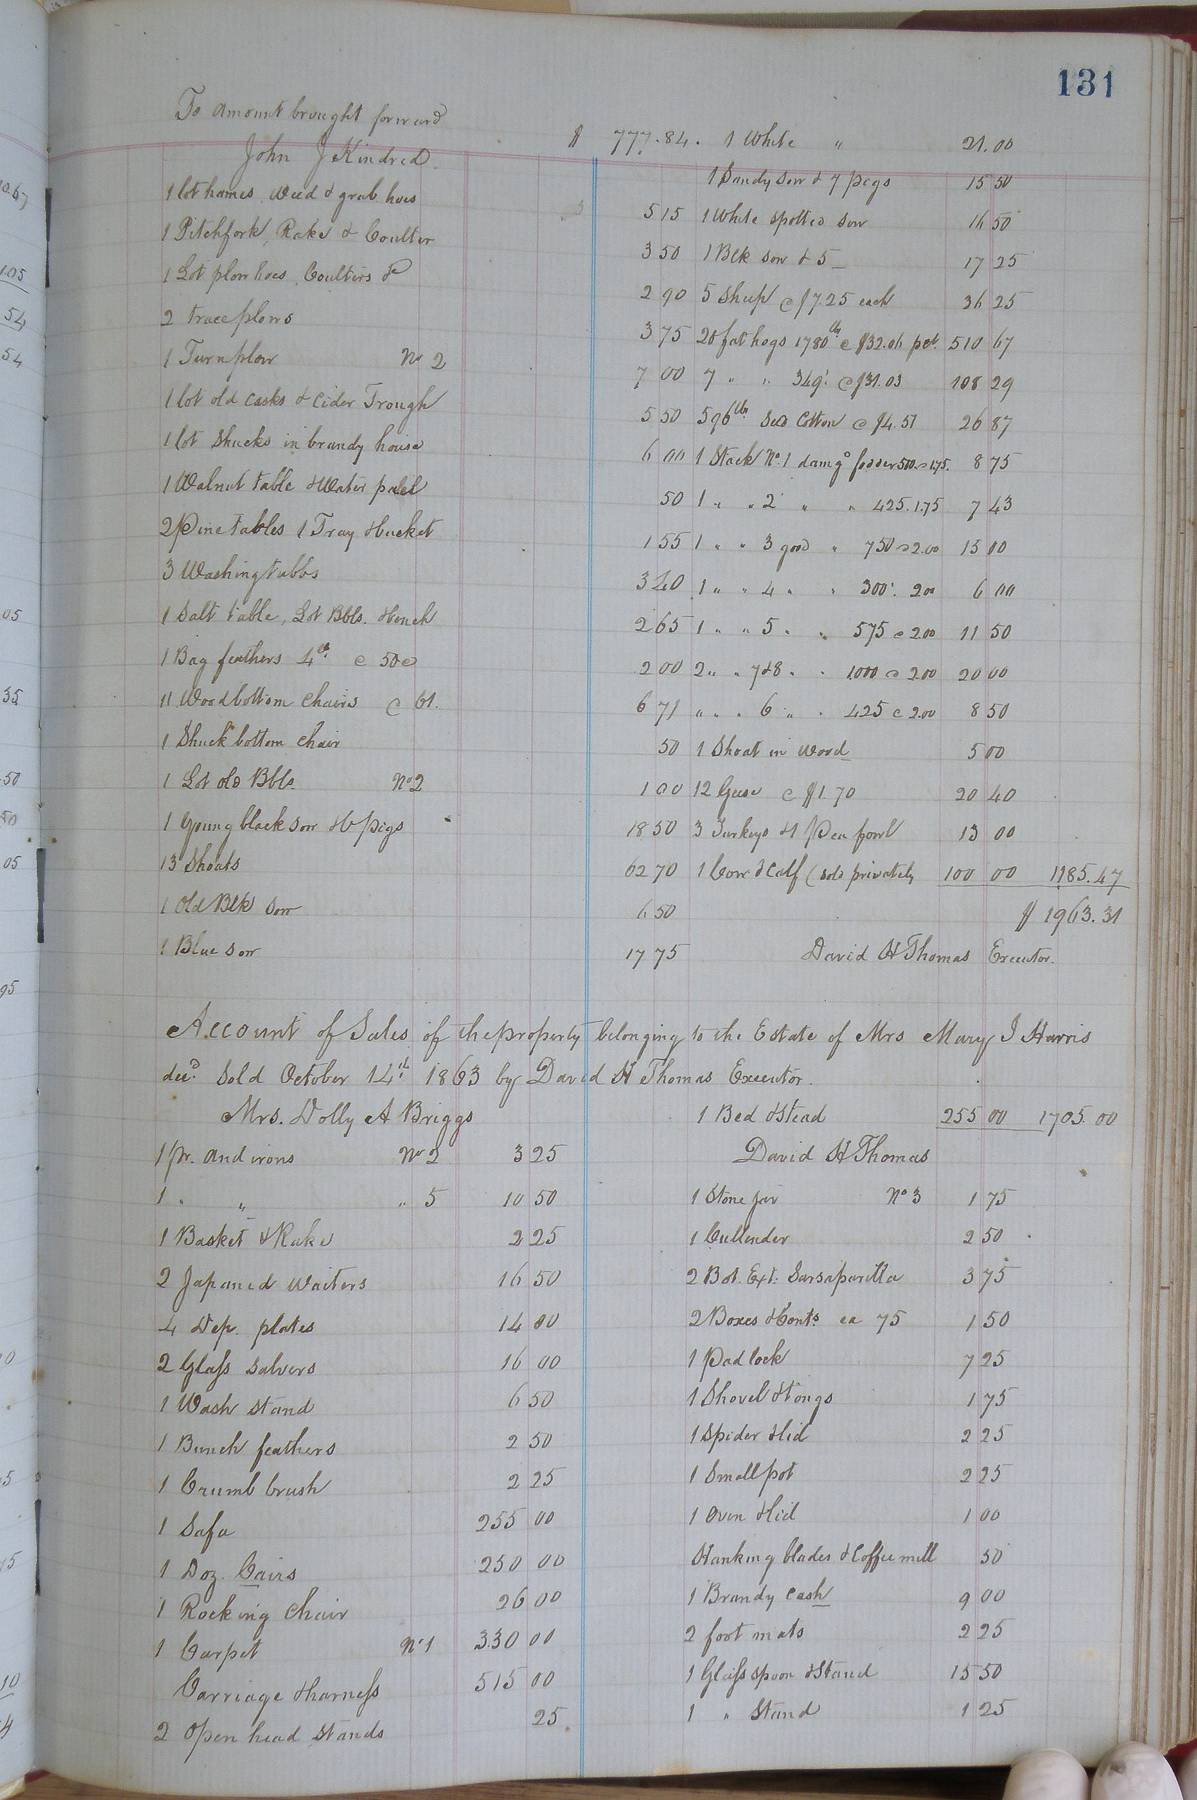 131
To amount brought forward $ 777.84.
John J Kindred
1 lot hames, weed & grub hoes 5 15
1 Pitchfork, Rake & Coulter 3 50
1 Lot plow hoes, Coulters &c 2 90
2 trace plows 3 75
1 Turnplow No 2 7 00
1 lot old casks & Cider Trough 5 50
1 lot Shucks in brandy house 6 00
1 Walnut table & Water pail 50
2 Pine tables 1 Tray & bucket 1 55
3 Washing tubbs 3 40
1 Salt table, Lot Bbls. & bench 2 65
1 Bag feathers 4 lb. @ 50c 2 00
11 Wood bottom chairs @ 61. 6 71
1 Shuck bottom chair 50
1 Lot old Bbls. No 2 1 00
1 Young black sow & 6 pigs 18 50
13 Shoats 62 70
1 Old Blk sow 6 50
1 Blue sow 17 75
1 White " 21.00
1 Sandy sow & 7 pigs 15 50
1 White spotted sow 16 50
1 Blk sow & 5 17 25
5 Sheep @ $7.25 each 36 25
20 fat hogs 1780 lbs @ $32.06 pr ct. 510 67
7 " " 349. @ $31.03 108 29
596 lbs Seed Cotton @ $4.51 26 87
1 Stack No. 1 damgd fodder 500 @ 1.75. 8 75
1 " " 2 " " 425. 1.75 7 43
1 " " 3 good " 750 @ 2.00 15 00
1 " " 4 " " 300. 2.00 6 00
1 " " 5 " " 575 @ 2.00 11 50
2 " " 7 & 8 " " 1000 @ 2.00 20 00
" " " 6 " " 425 @ 2.00 8 50
1 Shoat in wood 5 00
12 Geese @ $1.70 20 40
3 Turkeys & 1 Pea fowl 13 00
1 Cow & Calf (sold privately 100 00 1185.47
$ 1963.31
David H Thomas Executor.
Account of Sales of the property belonging to the Estate of Mrs Mary J Harris
decd. Sold October 14th 1863 by David H Thomas Executor.
Mrs. Dolly A Briggs
1 pr. Andirons No 2 3 25
1 " " " 5 10 50
1 Basket & Rake 2 25
2 Japaned Waiters 16 50
4 Dep. plates 14 00
2 Glass Salvers 16 00
1 Wash stand 6 50
1 Bunch feathers 2 50
1 Crumb brush 2 25
1 Safa 255 00
1 Doz. Cairs 250 00
1 Rocking Chair 26 00
1 Carpet No 1 330 00
Carriage & harness 515 00
2 Open head stands 25
1 Bed & Stead 255 00 1705.00
David H Thomas
1 Stone Jar No 3 1 75
1 Cullender 2 50
2 Bot. Ext. Sarsaparilla 3 75
2 Boxes & Conts. ea 75 1 50
1 Padlock 7 25
1 Shovel & tongs 1 75
1 Spider & lid 2 25
1 Small pot 2 25
1 Oven & lid 1 00
Hanking blades & Coffee mill 50
1 Brandy cash 9 00
2 foot mats 2 25
1 Glass spoon & Stand 15 50
1 " Stand 1 25